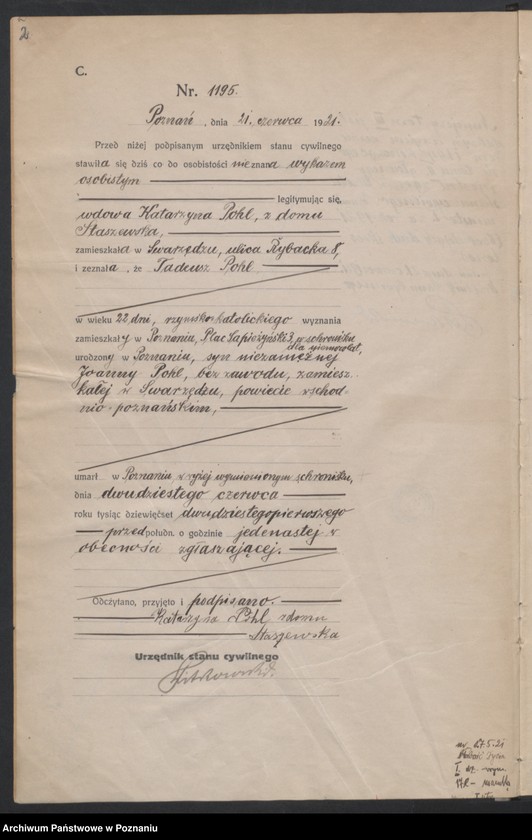 2
C.
Nr. 1195.
Poznań, dnia 21. czerwca 1921.
Przed niżej podpisanym urzędnikiem stanu cywilnego
stawiła się dziś co do osobistości nieznana wykazem
osobistym
legitymując się,
wdowa Katarzyna Pohl, z domu
Staszewska,
zamieszkała w Swarzędzu, ulica Rybacka 8,
i zeznała, że Tadeusz Pohl
w wieku 22 dni, rzymsko katolickiego wyznania
zamieszkały w Poznaniu, Plac Sapieżyński 3, w schronisku
dla niemowląt,
urodzony w Poznaniu, syn niezamężnej
Joanny Pohl, bez zawodu, zamiesz-
kałej w Swarzędzu, powiecie wschod-
nio-poznańskim,
umarł w Poznaniu, w wyżej wymienionym schronisku,
dnia dwudziestego czerwca
roku tysiąc dziewięćset dwudziestegopierwszego
przedpołudn. o godzinie jedenastej w
obecności zgłaszającej.
Odczytano, przyjęto i podpisano.
Katarzyna Pohl z domu
Staszewska
Urzędnik stanu cywilnego
ur. 27.5.21
Archiwum Państwowe w Poznaniu